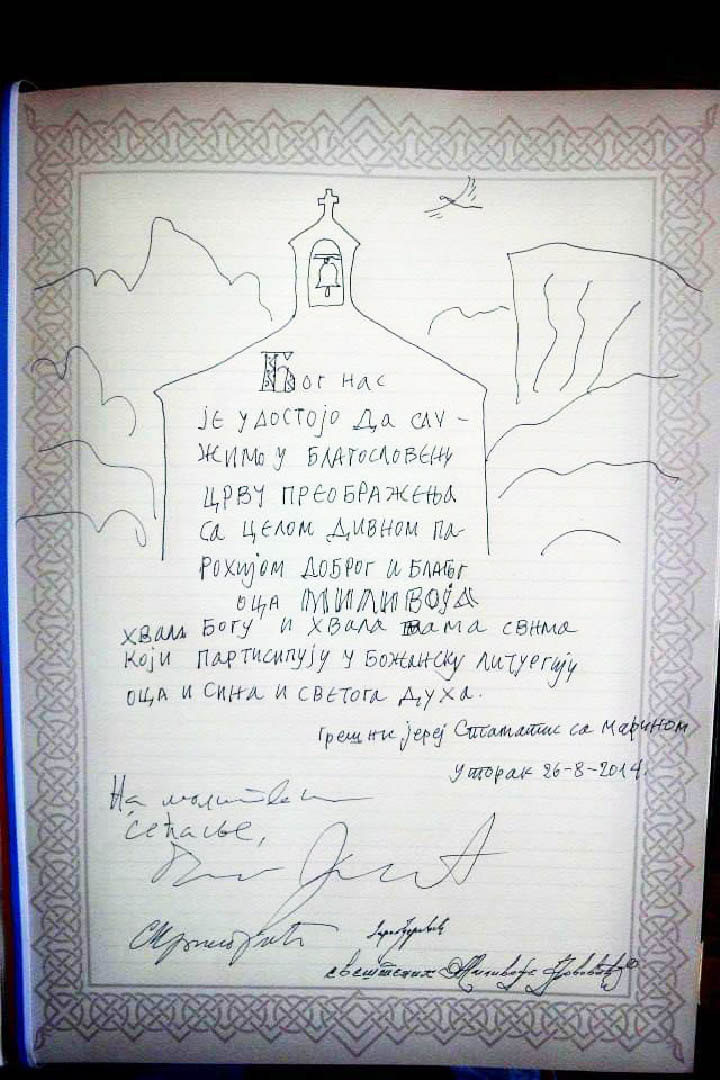 Бог нас
је удостојо да слу-
жимо у благословену
црву преображења
са целом дивном па-
рохијом доброг и благог
оца МИЛИВОЈА
хвала Богу и хвала вама свима
који партисипују у божанску литургију
оца и сина и светога духа.
грешни јереј Стаматис са Марином
уторак 26-8-2014.
На молитвено
сећање,
свештеник Миливоје